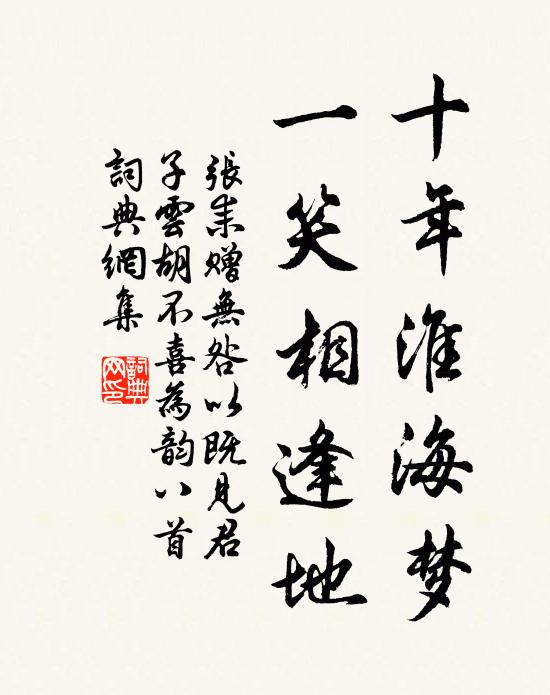 十年淮海梦
一笑相逢地
張耒赠無咎以既見君
子雲胡不喜為韵八首
詞典網集
詞典
网印